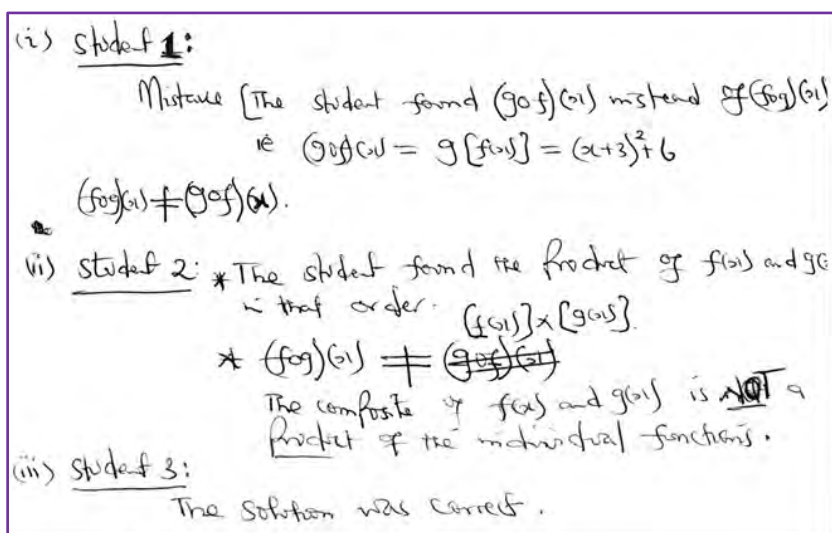 (i) Student 1:
Mistake [The student found (gof)(x) instead of (fog)(x)
ie (gof)(x) = g[f(x)] = (x+3)²+6
(fog)(x) ≠ (gof)(x).
(ii) Student 2: * The student found the product of f(x) and g(
in that order. [f(x)] x [g(x)].
* (fog)(x) ≠ (gof)(x)
The composite of f(x) and g(x) is NOT a
product of the individual functions.
(iii) Student 3:
The solution was correct.